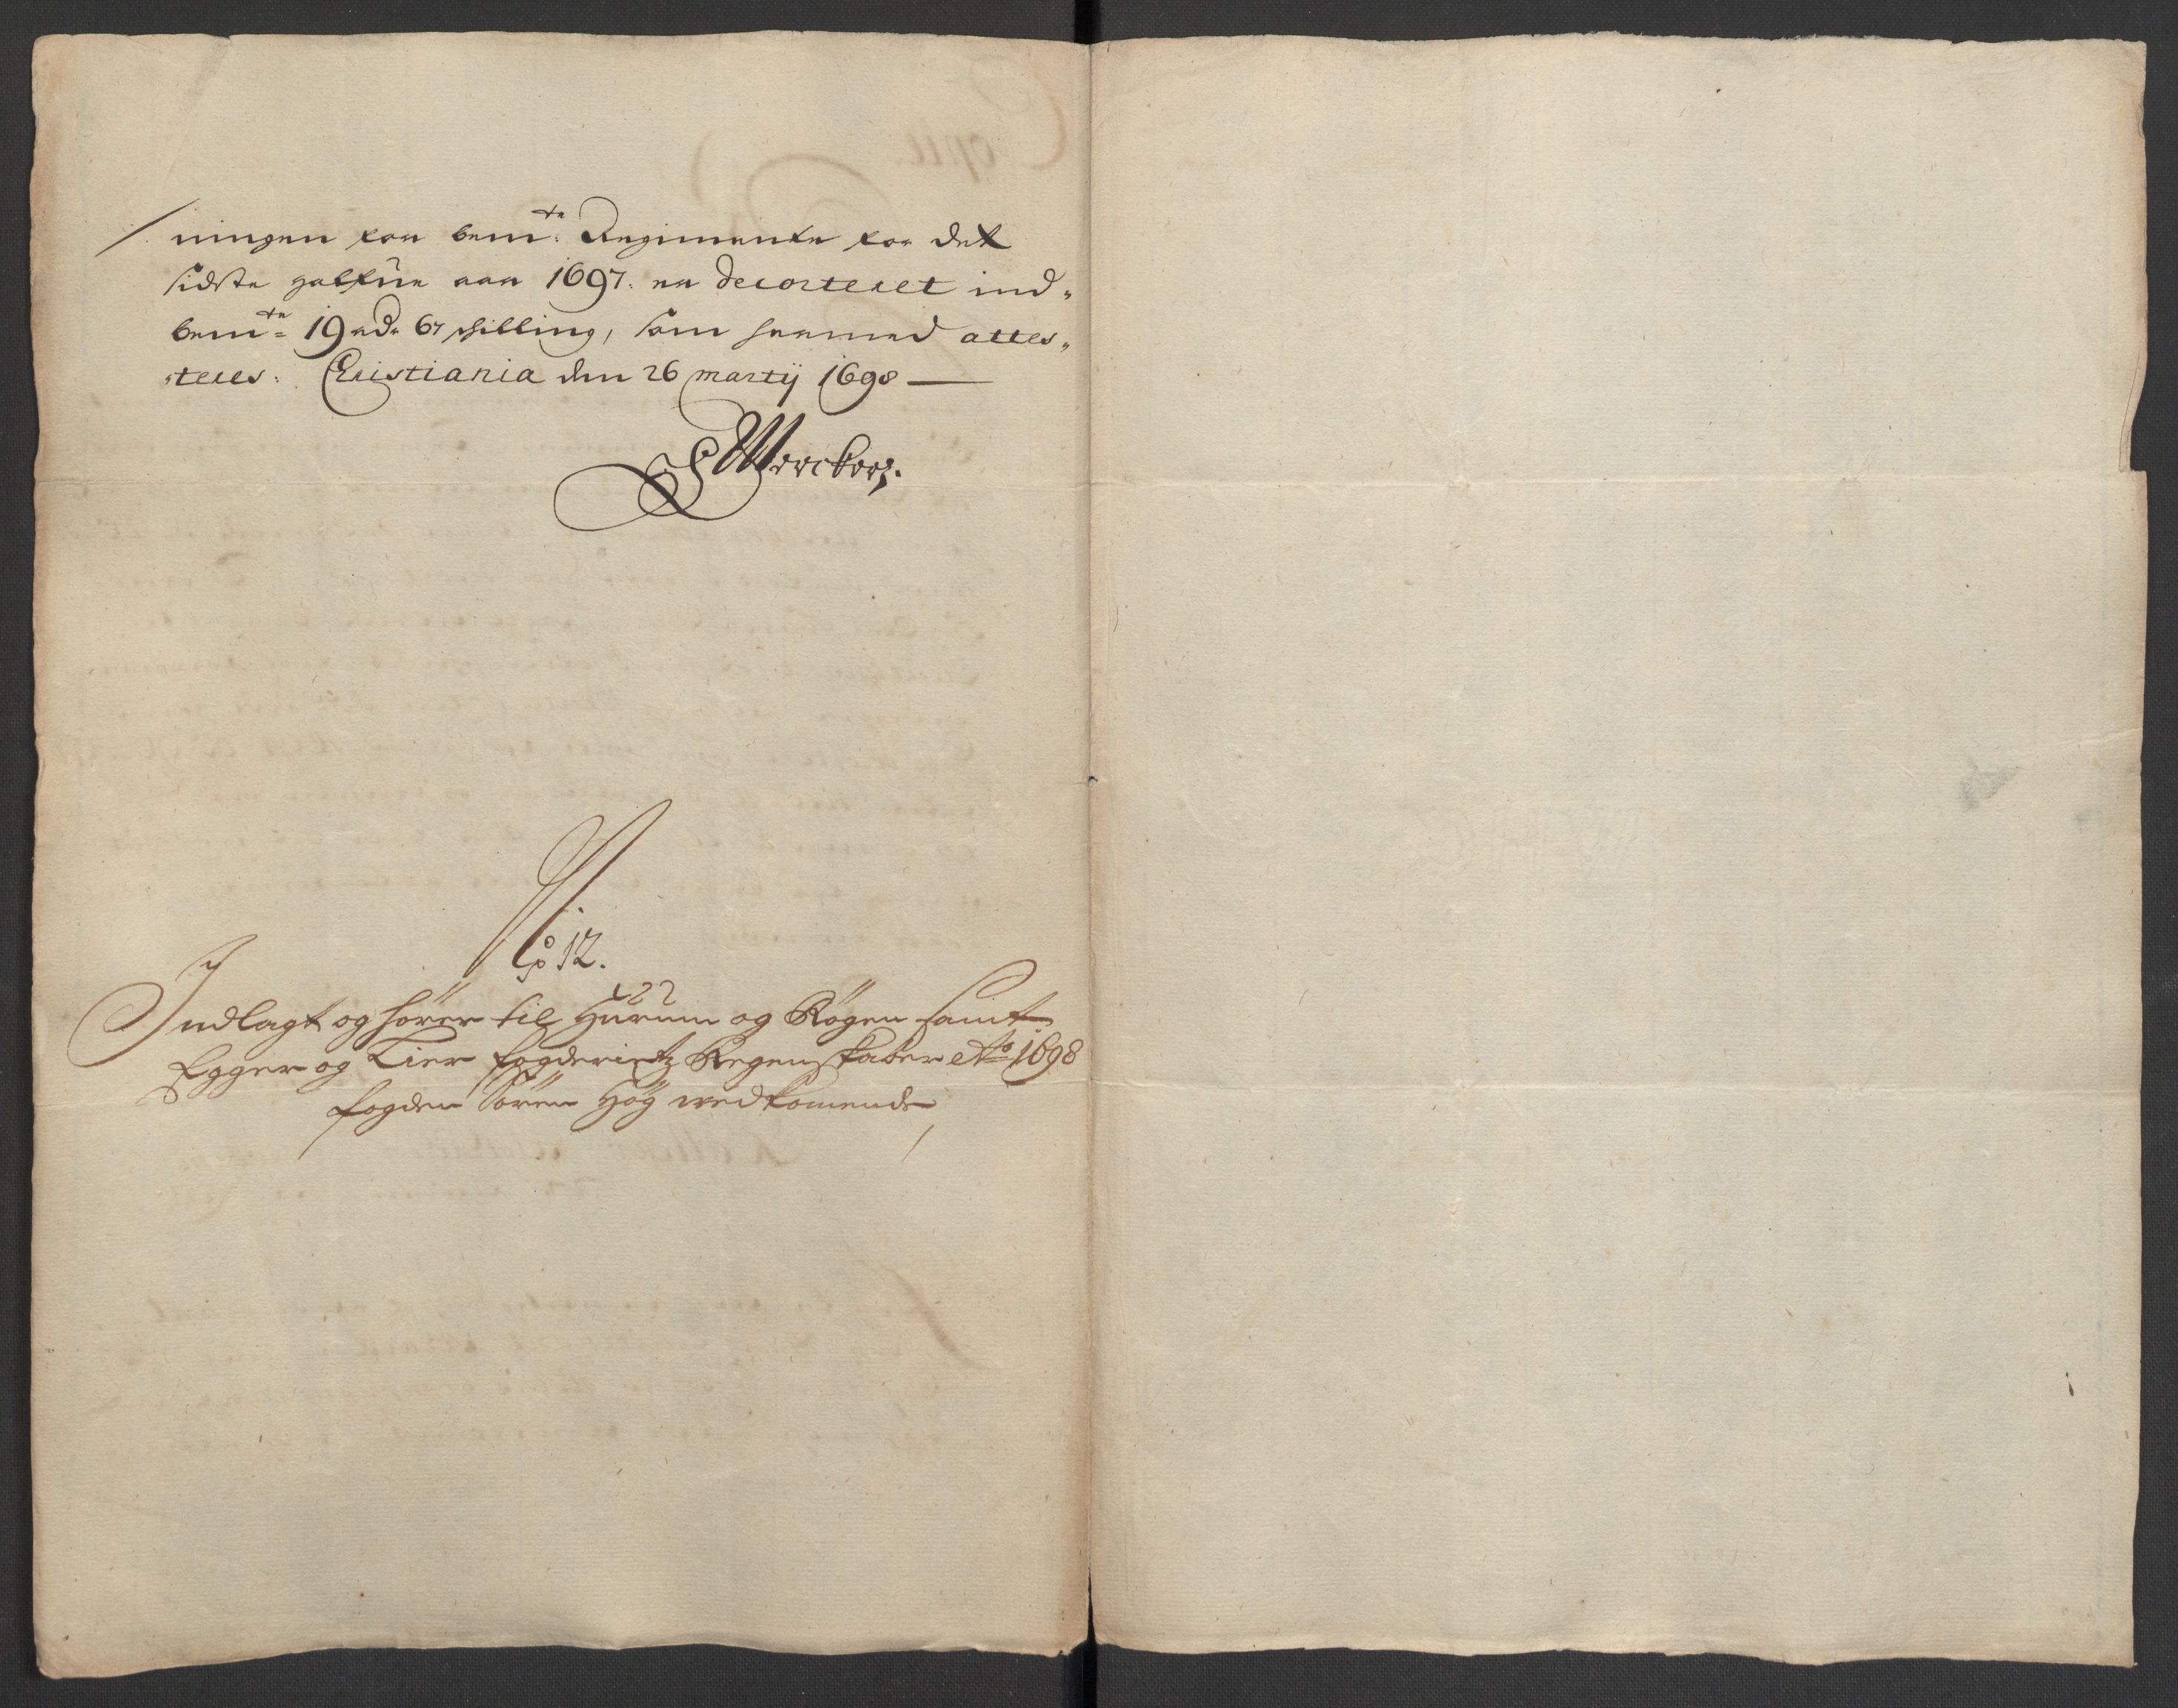 ningen for bem:te Regimente for det
sidste halfue aar 1697. er decorteret ind„
bem:te 19 rdr 67 skilling, som hermed attes„
„teres. Cristiania den 26 martij 1698 —
Werckorz.
No 12.
Indlagt og hörer til Hurum og Rögen samt
Egger og Lier fogderietz Regenskaber Ao 1698
fogden Sören Höÿ wedkomende